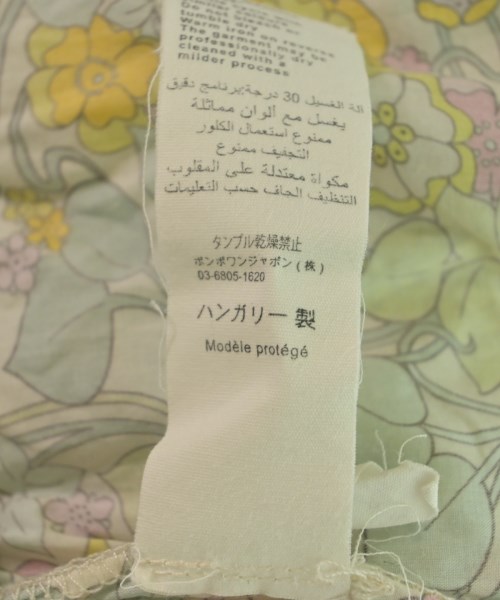 Do not bleach
tumble dry
Warm iron on reverse
The garment may be
professionally dry
cleaned with a
milder process
آلة الغسيل 30 درجة:برنامج دقيق
يغسل مع ألوان مماثلة
ممنوع استعمال الكلور
التجفيف ممنوع
مكواة معتدلة على المقلوب
التنظيف الجاف حسب التعليمات
タンブル乾燥禁止
ボンポワンジャポン（株）
03-6805-1620
ハンガリー 製
Modèle protégé